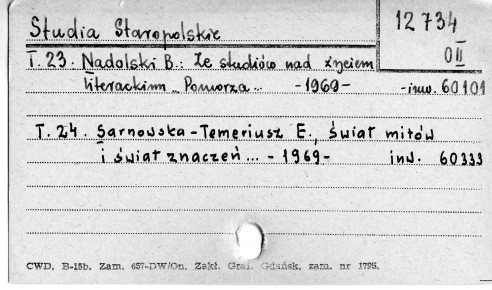 Studia Staropolskie
12 734
0 II
T. 23. Nadolski B.: Ze studiów nad życiem
literackim Pomorza... -1969- -inw. 60101
T. 24. Sarnowska-Temeriusz E., Świat mitów
i świat znaczeń... -1969- inw. 60333
CWD, B-15b, Zam. 657-DW/On. Zakł. Graf. Gdańsk, zam. nr 1795.